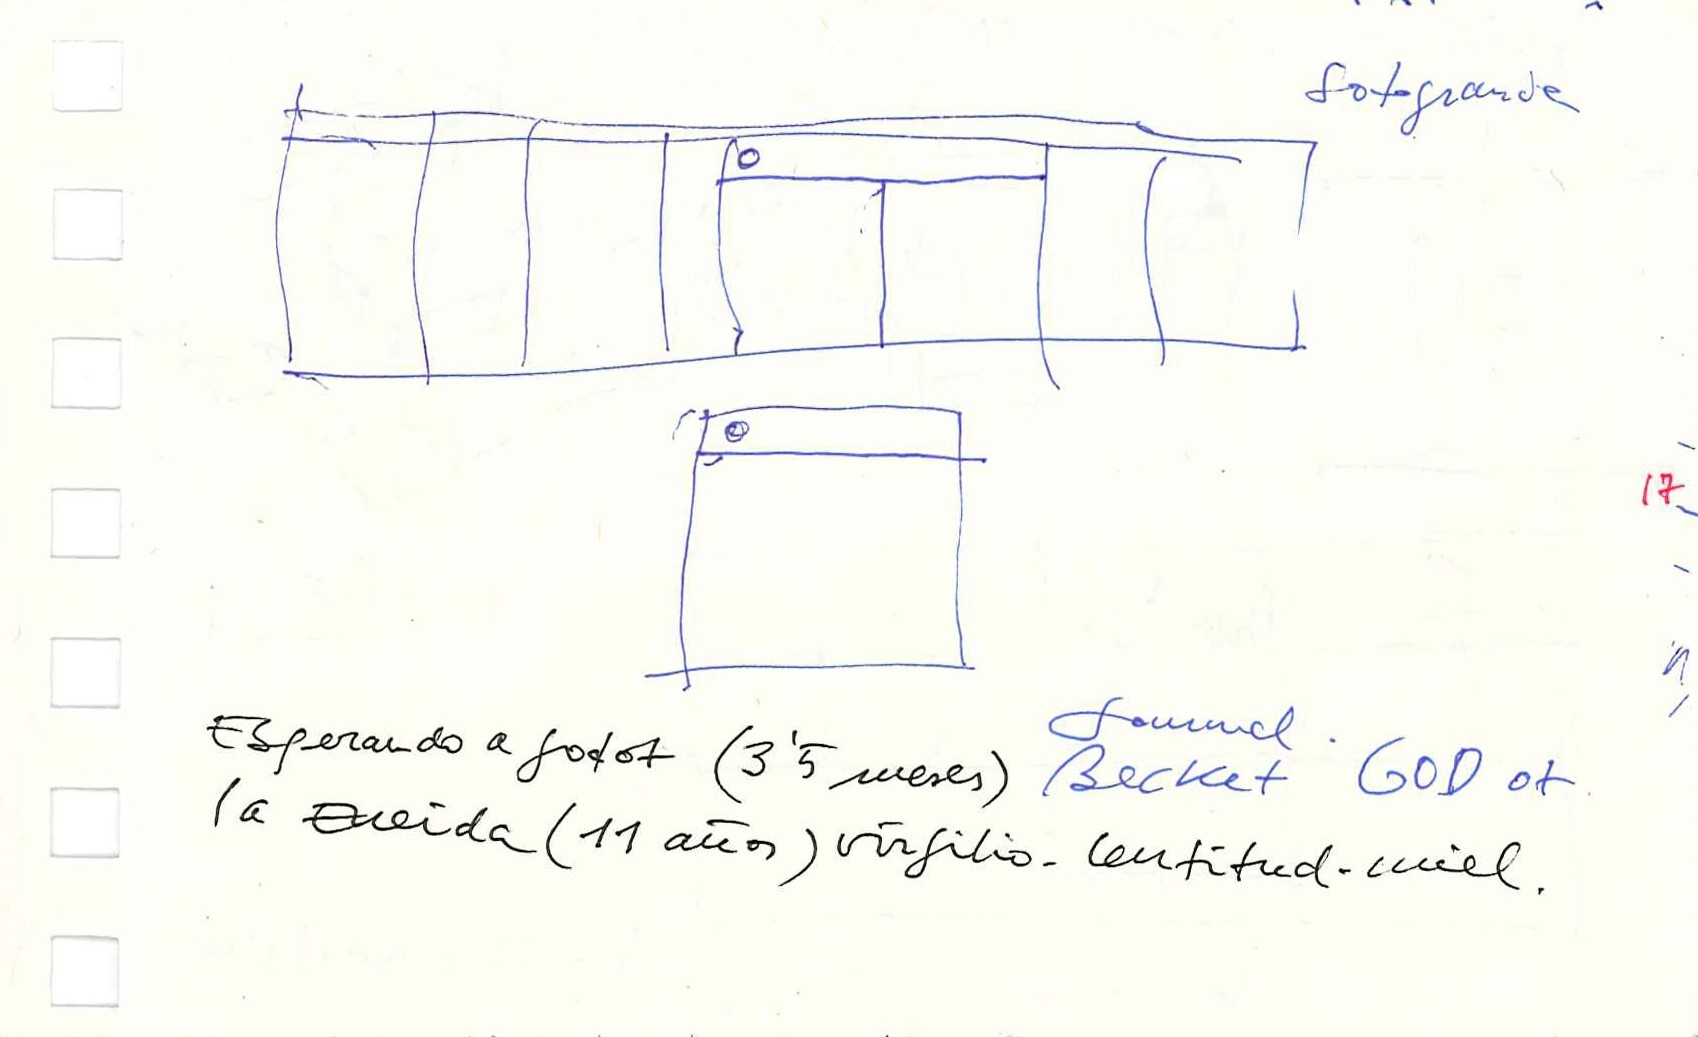 Sotogrande
17
Samuel.
Esperando a Godot (3'5 meses) Becket GOD ot.
la Eneida (11 años) Virgilio - lentitud - miel.